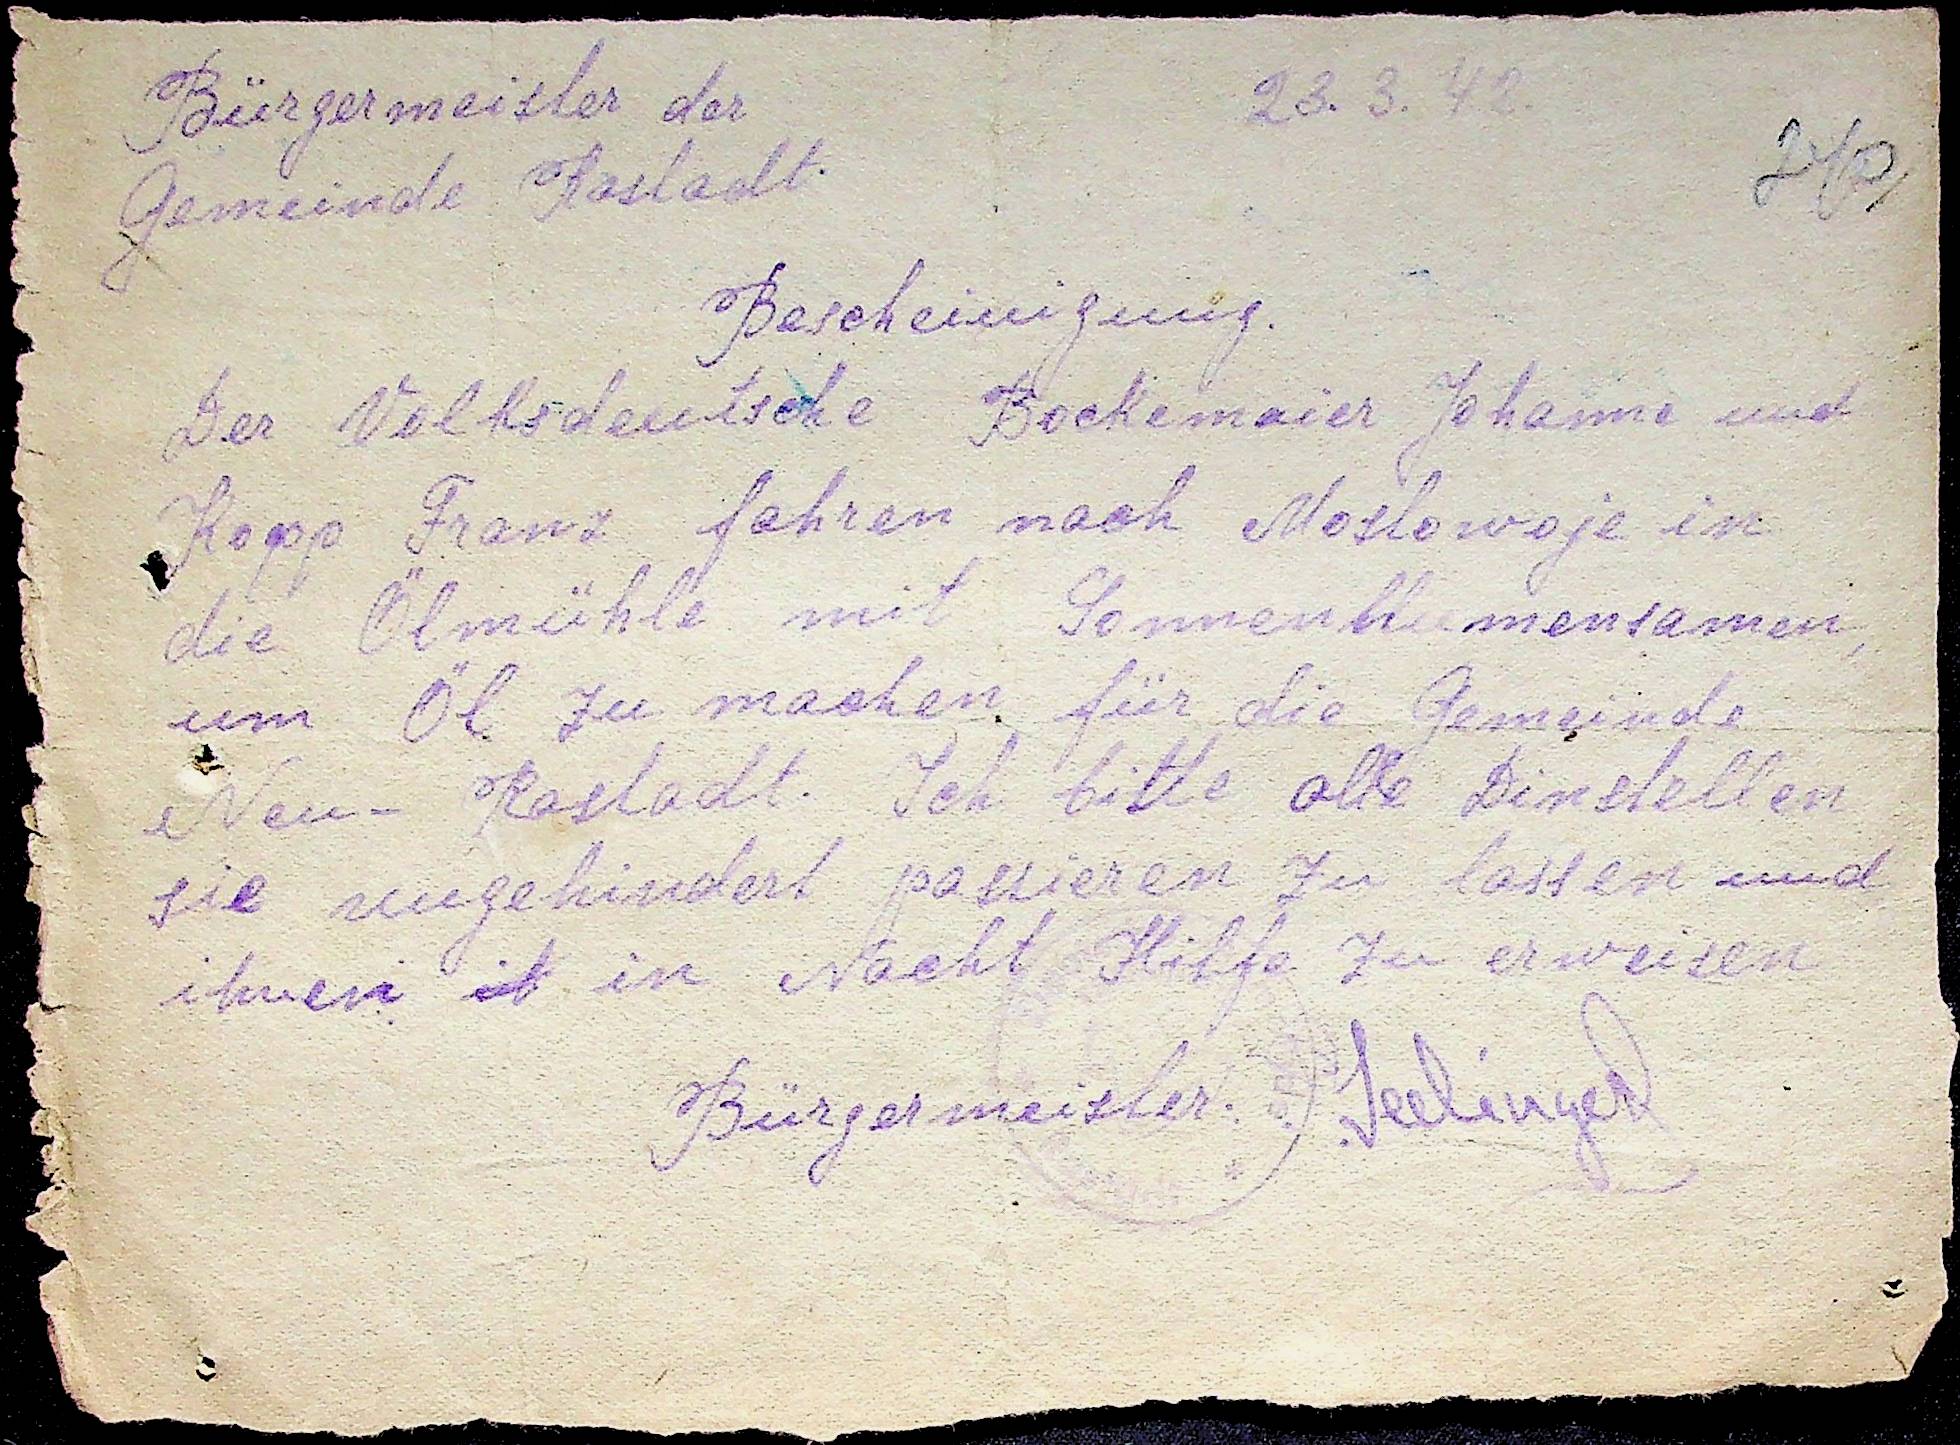 Bürgermeister der
23. 3. 42.
Gemeinde Rastadt.
Bescheinigung.
Der Volksdeutsche Bockemaier Johanne und
Kopp Franz fahren nach Mostowoje in
die Ölmühle mit Sonnenblumensamen,
um Öl zu machen für die Gemeinde
Neu- Rastadt. Ich bitte alle Dinstellen
sie ungehindert passieren zu lassen und
ihnen in Nacht Hilfe zu erweisen
Bürgermeister: Seelinger